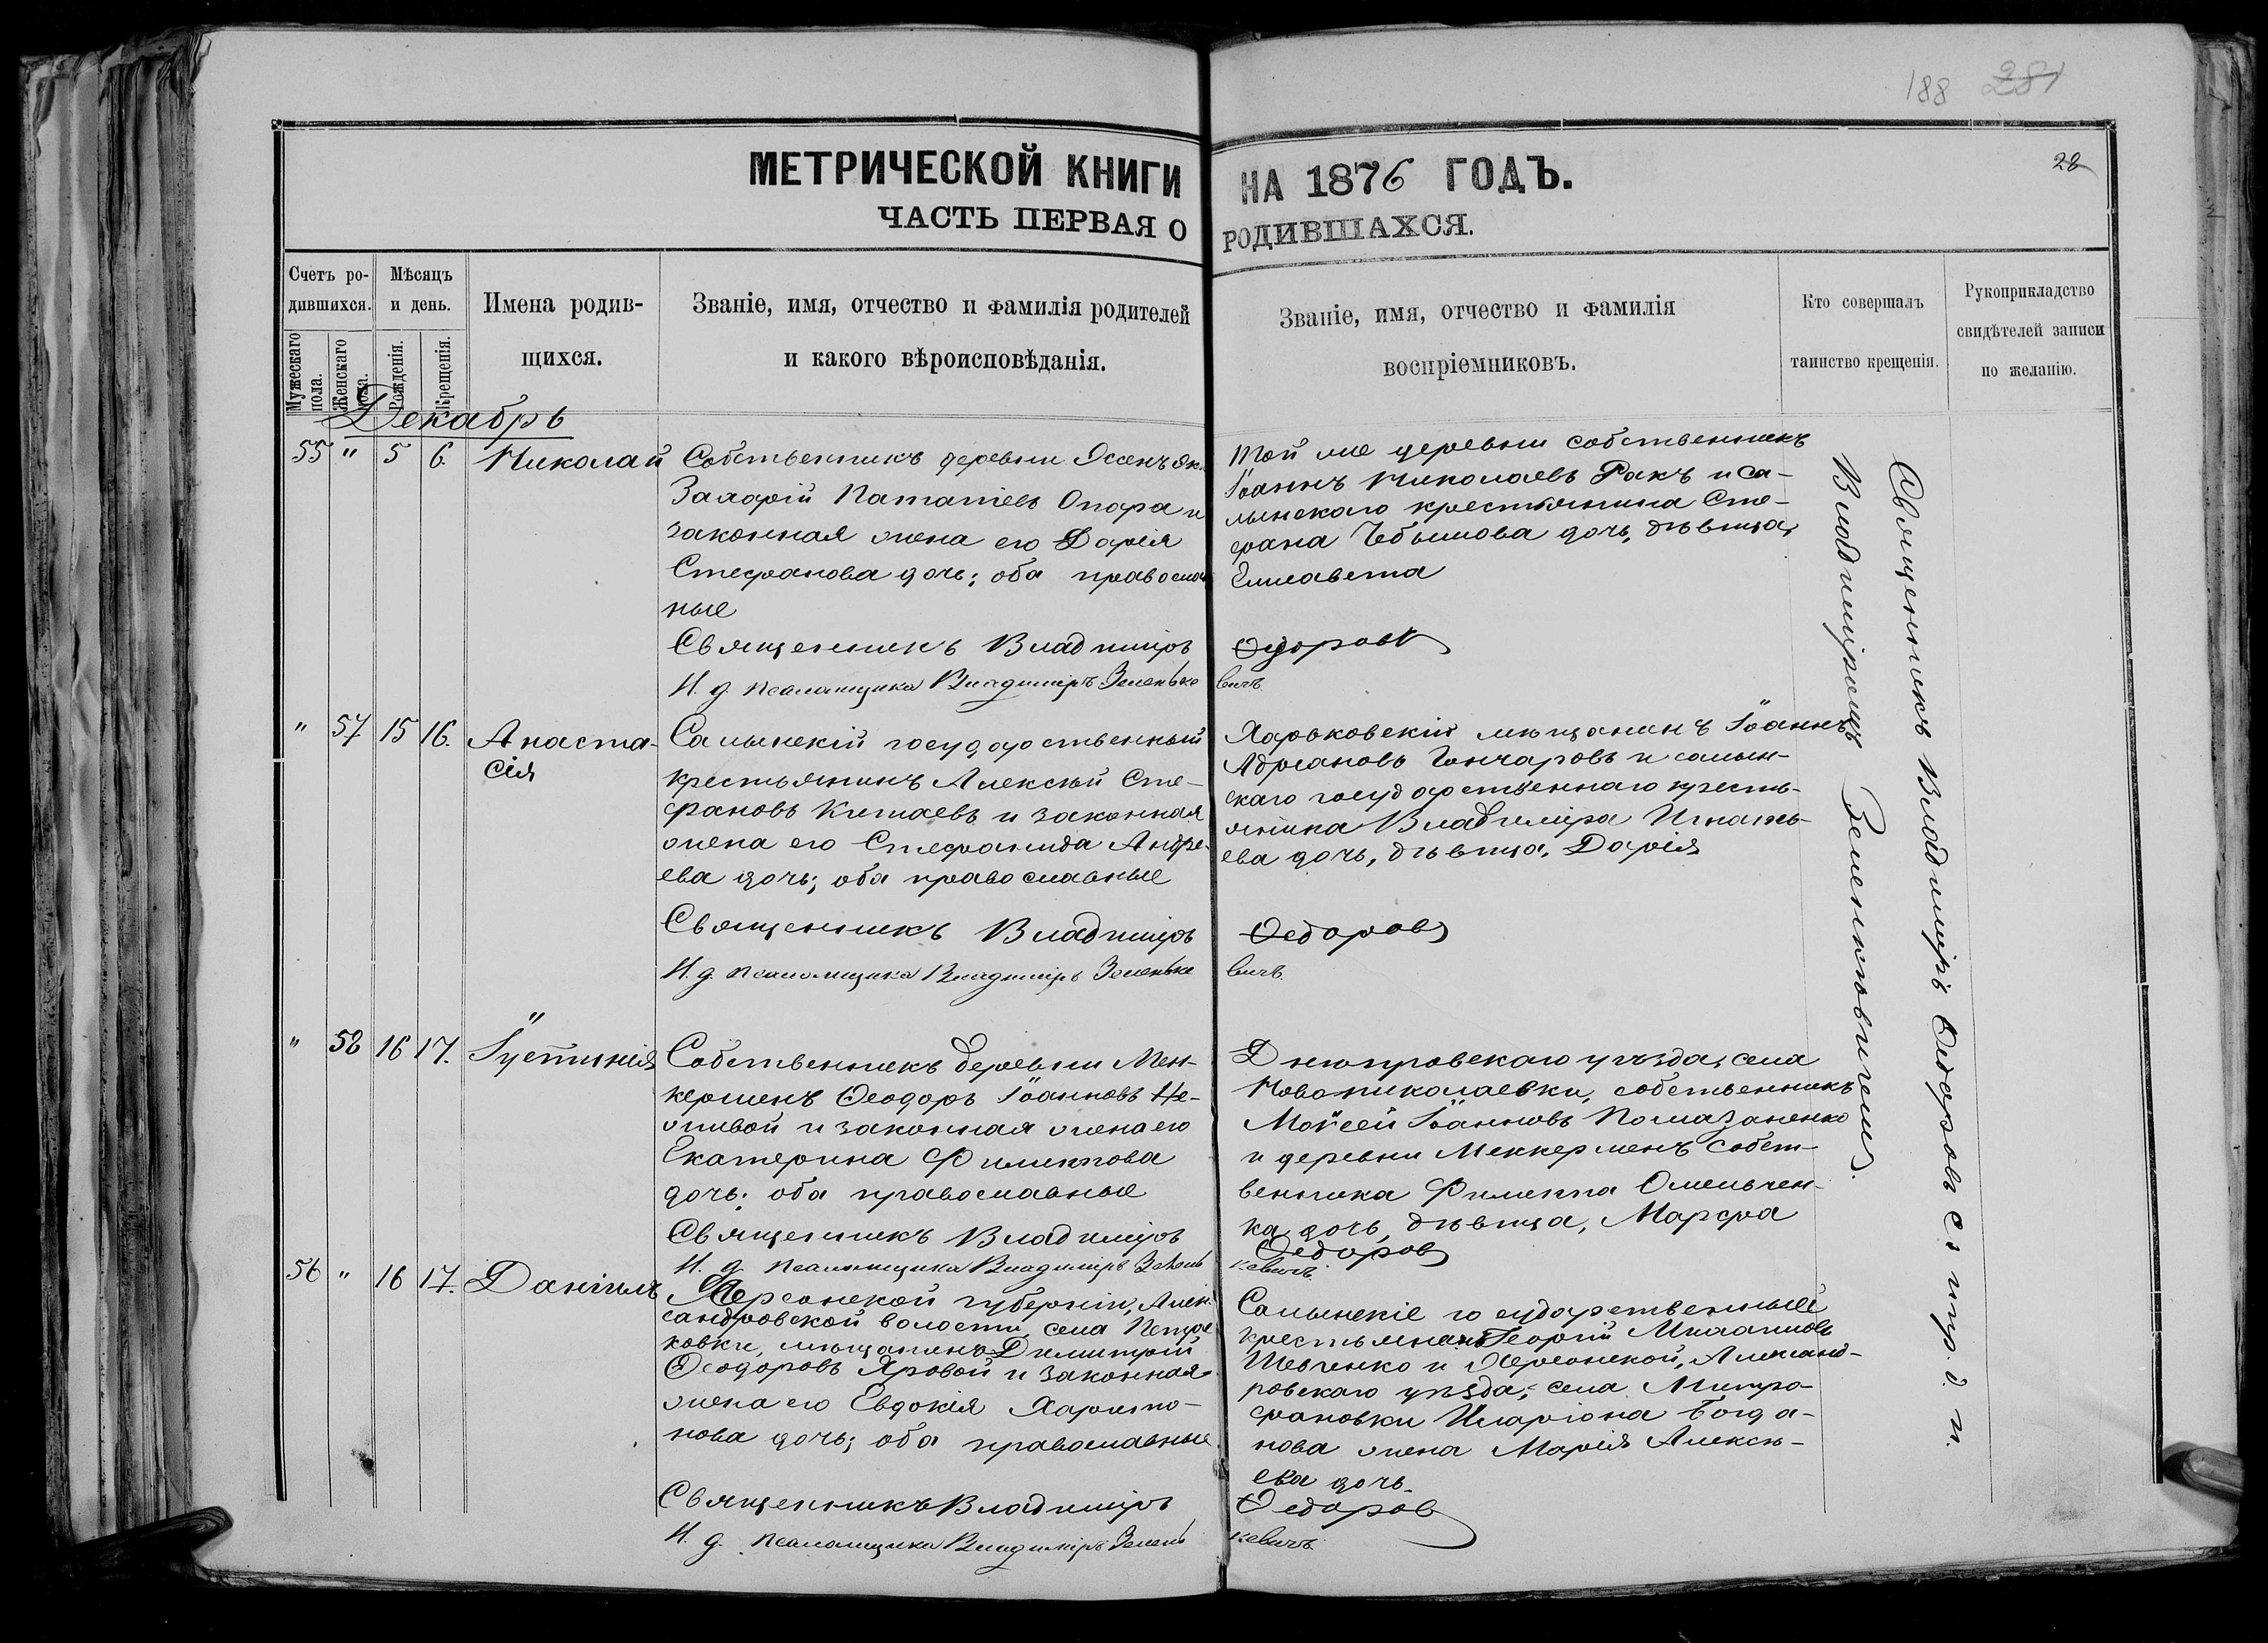 188 281
28
МЕТРИЧЕСКОЙ КНИГИ НА 1876 ГОДЪ.
ЧАСТЬ ПЕРВАЯ О РОДИВШАХСЯ.
Счетъ ро-
дившихся.
Мужескаго пола.
Женскаго пола.
Мѣсяцъ
и день.
Рожденія.
Крещенія.
Имена родив-
щихся.
Званіе, имя, отчество и фамилія родителей
и какого вѣроисповѣданія.
Званіе, имя, отчество и фамилія
воспріемниковъ.
Кто совершалъ
таинство крещенія.
Рукоприкладство
свидѣтелей записи
по желанію.
Декабрь
55 " 5 6. Николай
Собственникъ деревни
Захарій Опара и
законная жена его Дарія
Стефанова дочь; оба православ
ные
Священникъ Владиміръ Ѳедоровъ
И. д. псаломщика Владиміръ Зеленьке
вичъ.
Той же деревни собственникъ
Іоаннъ Николаевъ Ракъ и Са-
лынскаго крестьянина Сте-
фана дочь, дѣвица,
Елисавета
" 57 15 16. Анаста-
сія
Салынскій государственный
крестьянинъ Алексѣй Сте-
фановъ Китаевъ и законная
жена его Стефанида Андре-
ева дочь; оба православные
Священникъ Владиміръ Ѳедоровъ
И. д. псаломщика Владиміръ Зеленьке
вичъ.
Харьковскій мѣщанинъ Іоаннъ
Адріановъ Гончаровъ и салын-
скаго государственнаго кресть-
янина Владиміра Игнать-
ева дочь, дѣвица, Дарія
" 58 16 17. Іустинія
Собственникъ деревни Мен-
керменъ Ѳеодоръ Іоанновъ Не-
живой и законная жена его
Екатерина Филиппова
дочь; оба православные
Священникъ Владиміръ Ѳедоровъ
И. д. псаломщика Владиміръ Зелень
кевичъ.
Днепровскаго уѣзда, села
Новониколаевки, собственникъ
Моѵсей Іоанновъ Помазаненко
и деревни Менкерменъ собст-
венника Филиппа Омельчен-
ка дочь, дѣвица, Марфа
56 " 16 17. Даніилъ
Херсонской губерніи, Алек-
сандровской волости, села Петро
ковки, мѣщанинъ Димитрій
Ѳеодоровъ Яровой и законная
жена его Евдокія Харито-
нова дочь; оба православные
Священникъ Владиміръ Ѳедоровъ
И. д. псаломщика Владиміръ Зелень
кевичъ.
Салынскіе государственный
крестьянинъ Георгій
Шевченко и Херсонской, Александ-
ровскаго уѣзда, села Митро-
фановки Иларіона Богда-
нова жена Марія Алексѣ-
ева дочь.
Священникъ Владиміръ Ѳедоровъ съ
Владиміромъ Зеленкевичемъ.